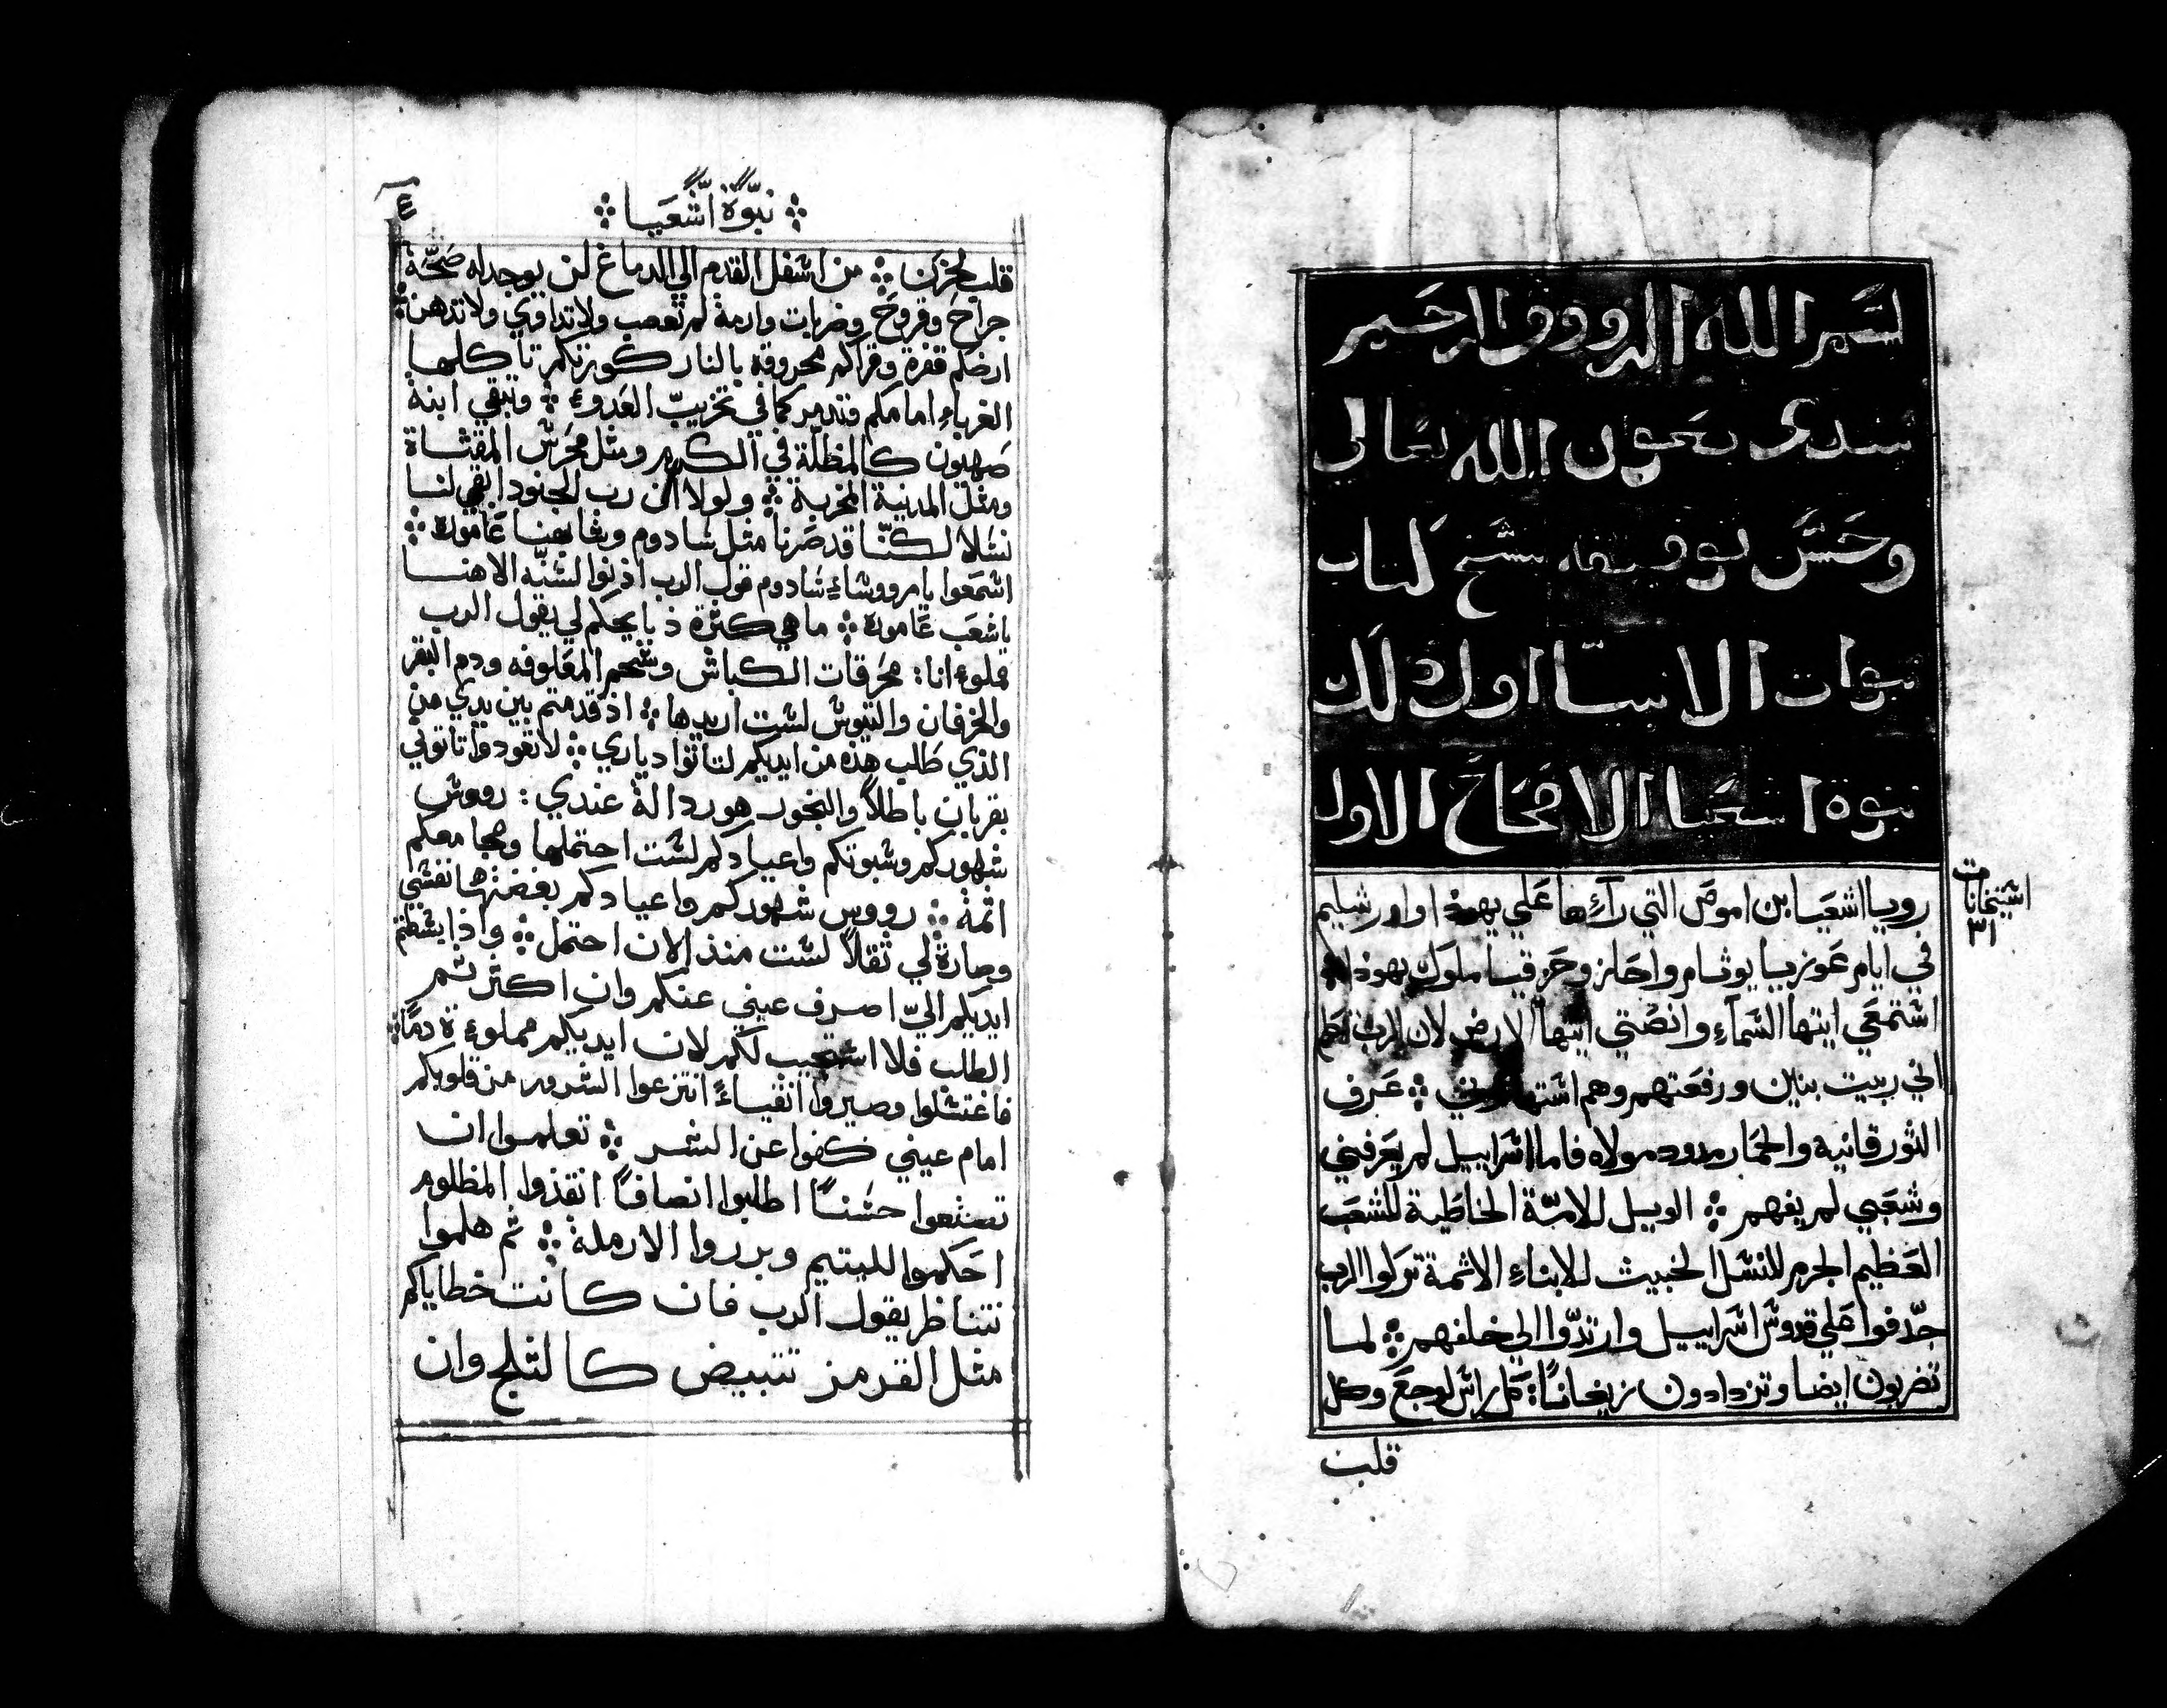 بسم الله الرووف الرحيم
نبتدي بعون الله تعالي
وحسن توفيقه بنسخ كتاب
نبوات الانبيا اول ذلك
نبوة اشعيا الاصحاح الاول
رويا اشعيا بن اموص التي رآءها علي يهوذا واورشليم
في ايام عوزيا يوثام واحاز وحزقيا ملوك يهوذا
استمعي ايتها السمآء وانصتي ايتها الارض لان الرب تكلم
اني ربيت بنين ورفعتهم وهم استهانوني ܀ عرف
الثور قانيه والحمار مدود مولاه فاما اسراييل لم يعرفني
وشعبي لم يفهم ܀ الويل للامّة الخاطية للشعب
العظيم الجرم للنسل الخبيث للابناء الاثمة تركوا الرب
جدّفوا علي قدوس اسراييل وارتدّوا الي خلفهم ܀ لما
تضربون ايضا وتزدادون زيغاناً: كل راس لوجع وكل
قلب
٣١
܀ نبّوة اشعيا ܀
قلب لحزن ܀ من اسفل القدم الي الدماغ لن يوجد له صحّة
جراح وقروح وضربات وارمة لم تعصب ولا تداوي ولا تدهن ܀
ارضكم قفرة وقراكم محروقة بالنار كورتكم تاكلها
الغرباء امامكم وتدمر كما في تخريب العدوء ܀ وتبقي ابنة
صهيون كالمظلّة في الكرم ومثل محرس المقثاة
ومثل المدينة المخربة ܀ ولولا ان رب الجنود ابقي لنا
نسلا لكنّا قد صرنا مثل سادوم وشابهنا عامورة ܀
اسمعوا يا رووساء سادوم قول الرب اذنوا لسنّة الاهنا
يا شعب عامورة ܀ ما هي كثرة ذبايحكم لي يقول الرب
مملوء انا: محرقات الكباش وشحم المعلوفه ودم البقر
والخرفان والتيوس لست اريدها ܀ اذ قدمتم بين يدي من
الذي طالب هذه من ايديكم لتاتوا دياري ܀ لا تعودوا تاتوني
بقربان باطلاً والبخور هو ردالة عندي: رووس
شهوركم وسبوتكم واعيادكم لست احتملها ومجامعكم
اثمة ܀ رووس شهوركم واعيادكم بغضتها نفسي
وصارة لي ثقلاً لست منذ الان احتمل ܀ واذا بسطتم
ايديكم اليّ اصرف عيني عنكم وان اكثرتم
الطلب فلا استجيب لكم لان ايديكم مملوءة دمًا ܀
فاغتسلوا وصيروا انقياءً انتزعوا الشرور من قلوبكم
امام عيني كفوا عن الشر ܀ تعلموا ان
تصنعوا حسناً اطلبوا انصافاً انقذوا المظلوم
احكموا لليتيم وبرروا الارملة ܀ ثم هلموا
نتناظر يقول الرب فان كانت خطاياكم
مثل القرمز تتبيض كالثلج وان